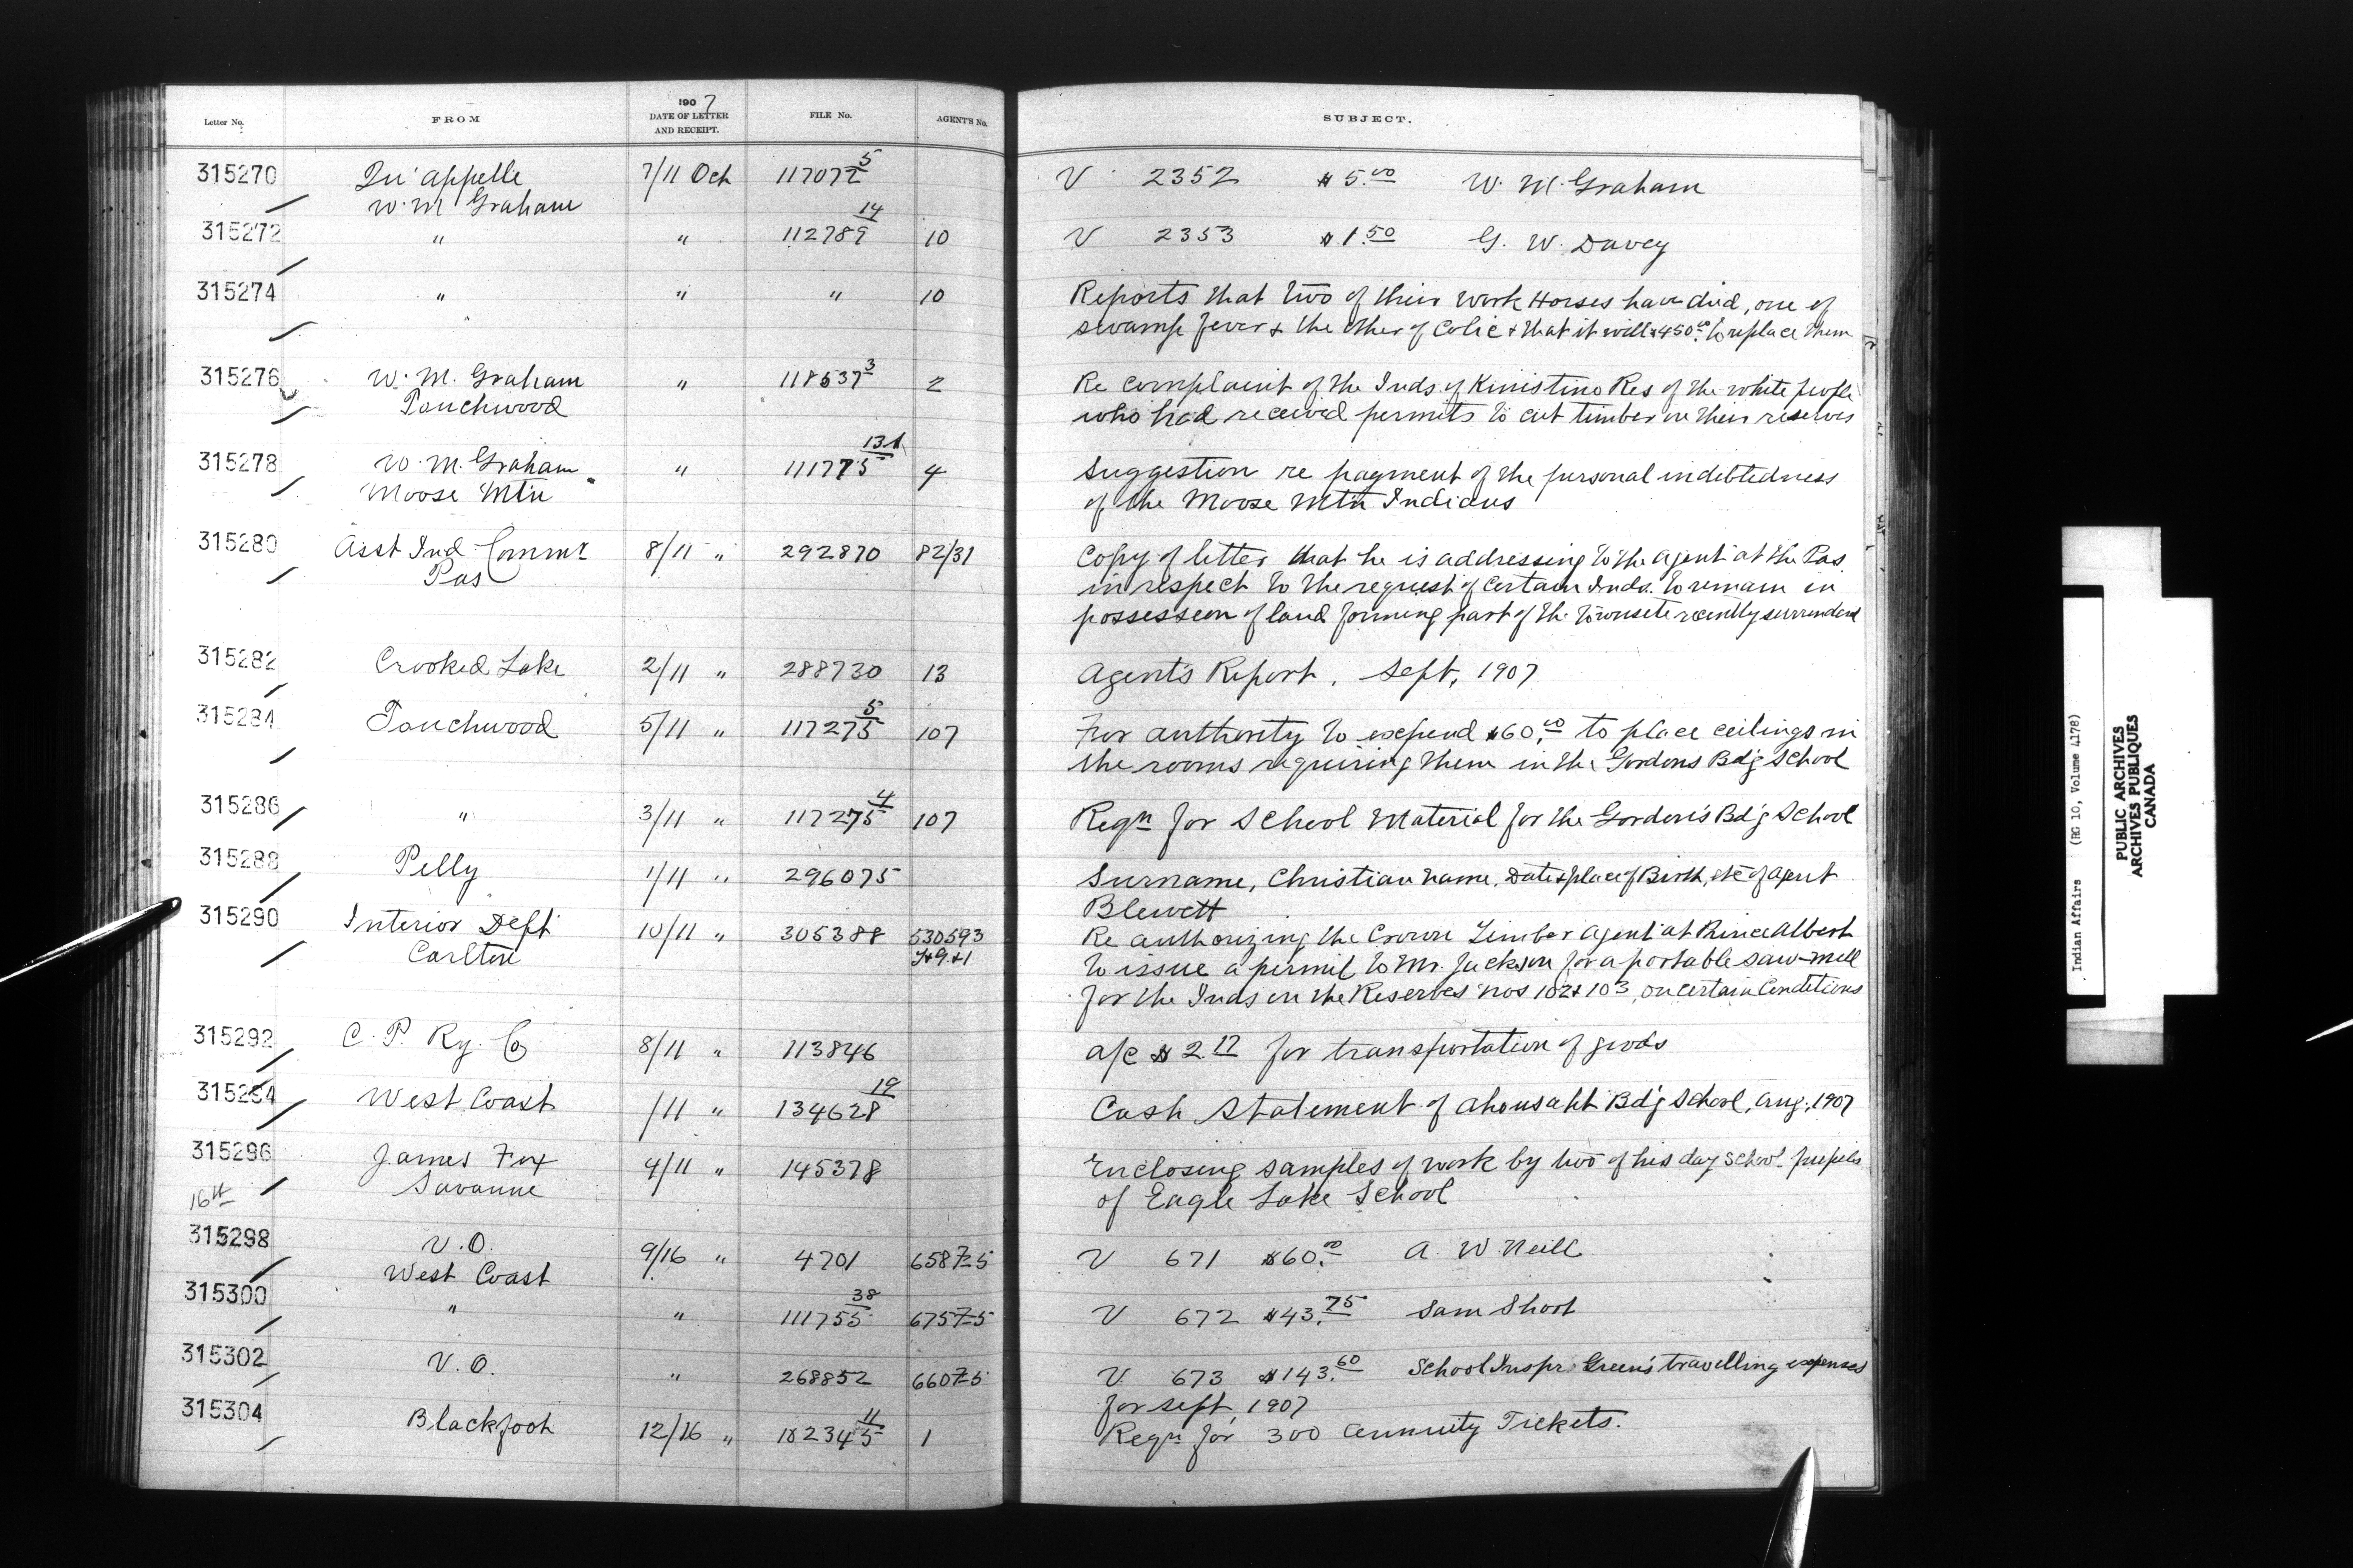 Letter No. FROM 1907 DATE OF LETTER AND RECEIPT. FILE No. AGENT'S No. SUBJECT.
315270 Qu'appelle 7/11 Oct 117072 5 V 2352 $5.00 W. M. Graham
W. M Graham
315272 " " 112789 14 10 V 2353 $1.50 G. W. Davey
315274 " " " 10 Reports that two of their work Horses have died, one of
swamp fever & the other of Colic & that it will $450.00 to replace them
315276 W. M. Graham " 118537 3 2 Re complaint of the Inds. of Kinistino Res of the white people
Touchwood who had received permits to cut timber on their reserves
315278 W. M. Graham " 111775 4 Suggestion re payment of the personal indebtedness
Moose Mtn of the Moose Mtn Indians
315280 Asst Ind Commr 8/11 " 292870 82/31 Copy of letter that he is addressing to the agent at the Pas
Pas in respect to the request of certain Inds. to remain in
possession of land forming part of the townsite recently surrendered
315282 Crooked Lake 2/11 " 288730 13 Agent's Report, Sept, 1907
315284 Touchwood 5/11 " 117275 5 107 For authority to expend $60.00 to place ceilings in
the rooms requiring them in the Gordons Bdg School
315286 " 3/11 " 117275 4 107 Reqn for School Material for the Gordon's Bdg School
315288 Pelly 1/11 " 296075 Surname, Christian name, Date & place of Birth, etc of agent
Blewett
315290 Interior Dept 10/11 " 305388 530593 Re authorizing the Crown Timber agent at Prince Albert
Carlton to issue a permit to Mr. Jackson for a portable saw-mill
for the Inds on the Reserves nos 102 & 103, on certain Conditions
315292 C. P. Ry. Co 8/11 " 113846 a/c $2.17 for transportation of goods
315294 West Coast /11 " 134628 19 Cash Statement of Ahousaht Bdg School, Aug, 1907
315296 James Fox 4/11 " 145378 Enclosing samples of work by two of his day school pupils
16th Savanne of Eagle Lake School
315298 V. O. 9/16 " 4701 658 7-5 V 671 $60.00 A. W. Neill
West Coast
315300 " " 111755 38 675 7-5 V 672 $43.75 Sam Shoot
315302 V. O. " 268852 660 7-5 V. 673 $143.60 School Inspr. Green's travelling expenses
for Sept, 1907
315304 Blackfoot 12/16 " 182345 11 1 Reqn for 300 Annuity Tickets.
Indian Affairs (RG 10, Volume 4178)
PUBLIC ARCHIVES
ARCHIVES PUBLIQUES
CANADA